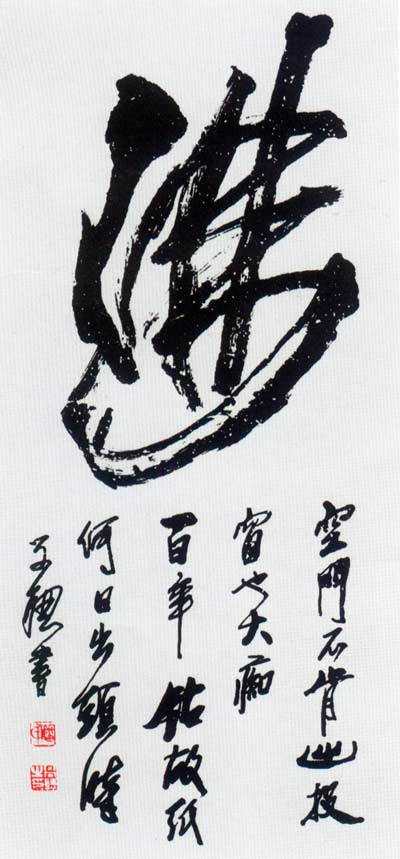 佛
空門不肯出投
窗也大痴
百年鉆故紙
何日出頭時
書